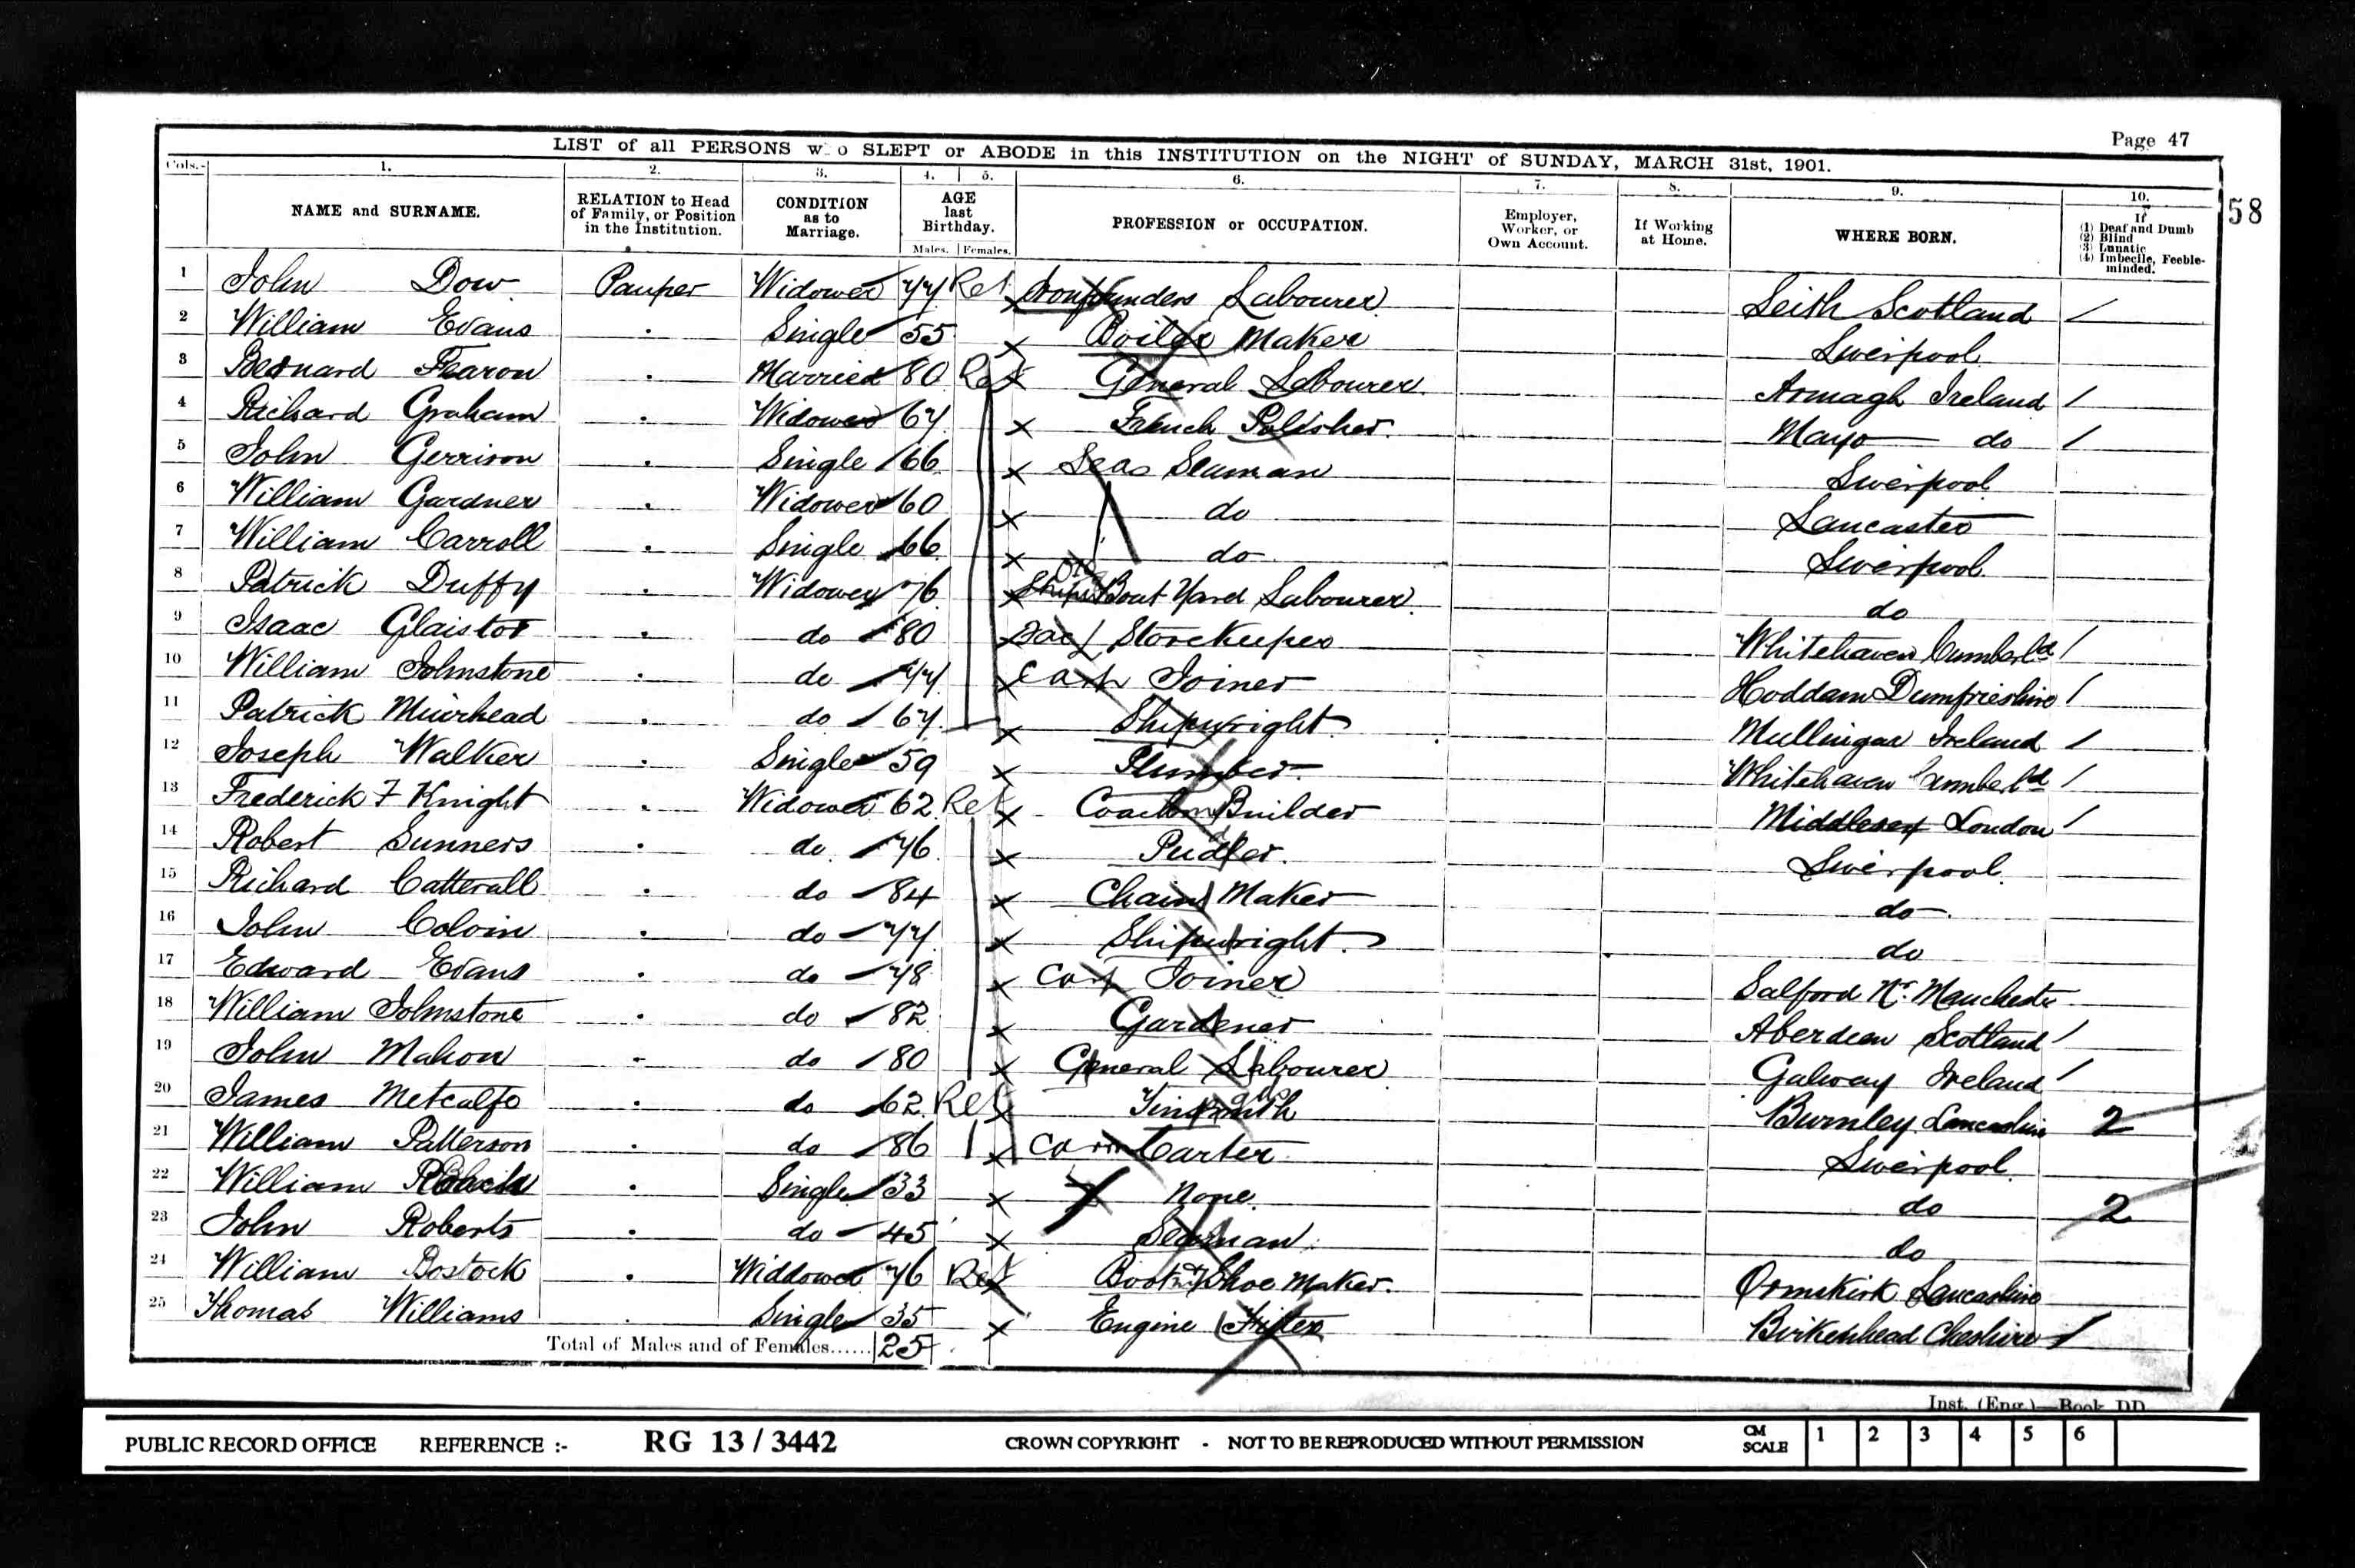 Page 47
LIST of all PERSONS w o SLEPT or ABODE in this INSTITUTION on the NIGHT of SUNDAY, MARCH 31st, 1901.
58
Cols.- 1. 2. 3. 4. 5. 6. 7. 8. 9. 10.
NAME and SURNAME. RELATION to Head of Family, or Position in the Institution. CONDITION as to Marriage. AGE last Birthday. Males. Females. PROFESSION or OCCUPATION. Employer, Worker, or Own Account. If Working at Home. WHERE BORN. If (1) Deaf and Dumb (2) Blind (3) Lunatic (4) Imbecile, Feeble-minded.
1 John Dow Pauper Widower 77 Ret Ironfounders Labourer Leith Scotland
2 William Evans Single 55 Boiler Maker Liverpool
3 Bernard Fearon Married 80 Ret General Labourer Armagh Ireland
4 Richard Graham Widower 67 French Polisher Mayo do
5 John Gerrison Single 66 Seas Seaman Liverpool
6 William Gardner Widower 60 do Lancaster
7 William Carroll Single 66 do Liverpool
8 Patrick Duffy Widower 76 Boat Yard Labourer do
9 Isaac Glaister do 80 Storekeeper Whitehaven Cumberld
10 William Johnstone do 77 Joiner Hoddam Dumfriesshire
11 Patrick Muirhead do 67 Shipwright Mullingar Ireland
12 Joseph Walker Single 59 Plumber Whitehaven Cumberld
13 Frederick F Knight Widower 62 Ret Coach Builder Middlesex London
14 Robert Sunners do 76 Pudler Liverpool
15 Richard Catterall do 84 Chain Maker do
16 John Colvin do 77 Shipwright do
17 Edward Evans do 78 Joiner Salford Nr. Manchester
18 William Johnstone do 82 Gardener Aberdeen Scotland
19 John Mahon do 80 General Labourer Galway Ireland
20 James Metcalfe do 62 Ret Tinsmith Burnley Lancashire 2
21 William Patterson do 86 Carter Liverpool
22 William Single 33 None do 2
23 John Roberts do 45 Seaman do
24 William Bostock Widdower 76 Ret Boot & Shoe Maker Ormskirk Lancashire
25 Thomas Williams Single 35 Engine Fitter Birkenhead Cheshire
Total of Males and of Females...... 25
Inst. (Eng.)—Book DD
PUBLIC RECORD OFFICE REFERENCE :- RG 13 / 3442 CROWN COPYRIGHT - NOT TO BE REPRODUCED WITHOUT PERMISSION CM SCALE 1 2 3 4 5 6